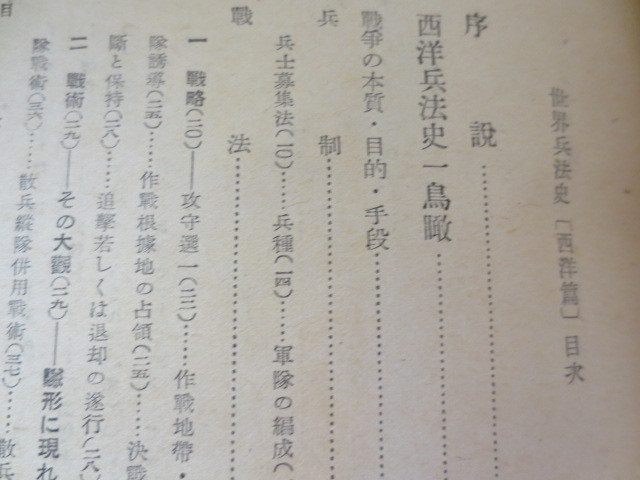 世界兵法史〔西洋篇〕目次
序說……………………
西洋兵法史一鳥瞰……………
戰爭の本質・目的・手段……………
兵制……………………
兵士募集法(一〇)……兵種(一四)……軍隊の編成(
戰法……………………
一 戰略(二〇)——攻守選一(二三)……作戰地帶・
隊誘導(二五)……作戰根據地の占領(二五)……決戰
斷と保持(二八)……追擊若しくは退却の遂行(二八)
二 戰術(二九)——その大觀(二九)——隊形に現れ
隊戰術(三六)……散兵縱隊併用戰術(三七)……散兵
目